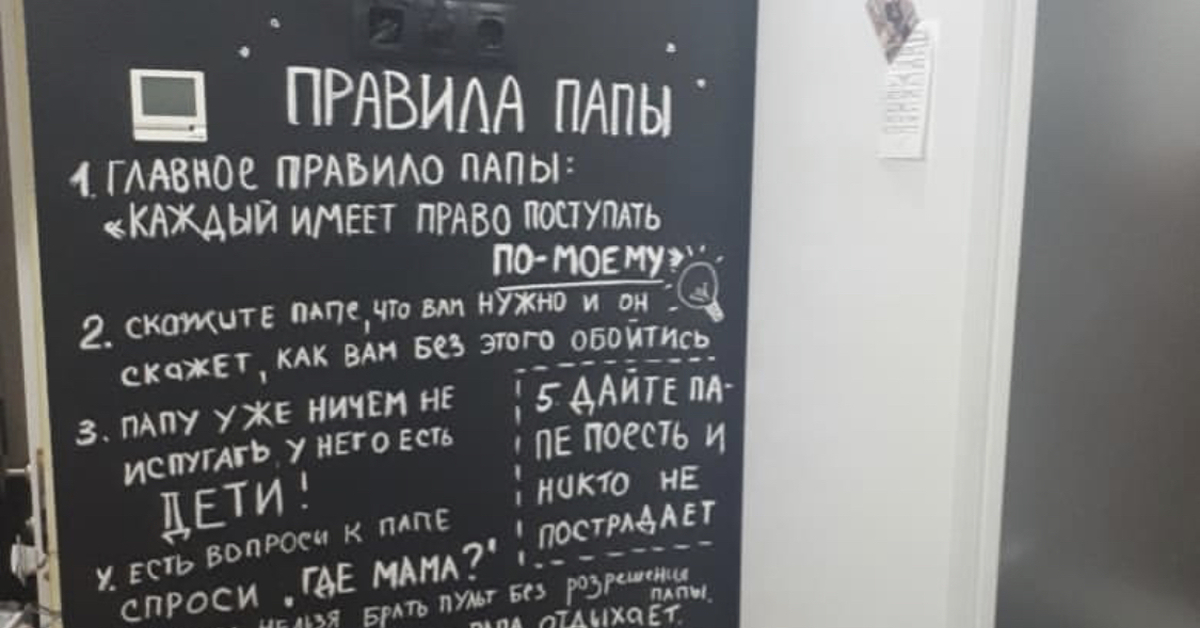 ПРАВИЛА ПАПЫ
1. ГЛАВНОЕ ПРАВИЛО ПАПЫ:
«КАЖДЫЙ ИМЕЕТ ПРАВО ПОСТУПАТЬ
ПО-МОЕМУ»
2. СКАЖИТЕ ПАПЕ, ЧТО ВАМ НУЖНО И ОН
СКАЖЕТ, КАК ВАМ БЕЗ ЭТОГО ОБОЙТИСЬ
3. ПАПУ УЖЕ НИЧЕМ НЕ
ИСПУГАТЬ, У НЕГО ЕСТЬ
ДЕТИ!
4. ЕСТЬ ВОПРОСИ К ПАПЕ
СПРОСИ „ГДЕ МАМА?"
5. ДАЙТЕ ПА-
ПЕ ПОЕСТЬ И
НИКТО НЕ
ПОСТРАДАЕТ
НЕЛЬЗЯ БРАТЬ ПУЛЬТ БЕЗ РОЗРЕШЕНИЯ
ПАПЫ.
ПАПА ОТДЫХАЕТ.